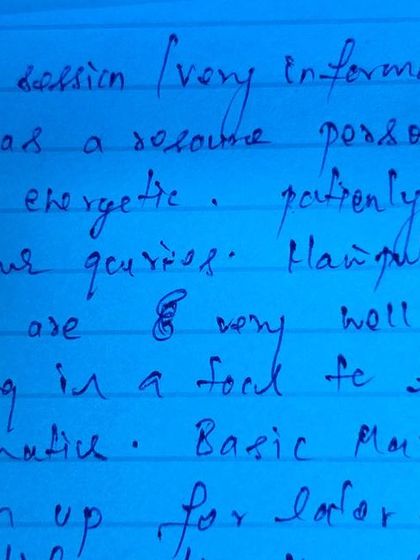 session (very inform
as a resource perso
energetic. patienly
ur queries. Manipu
are very well
g in a food to
matics. Basic Ma
n up for later